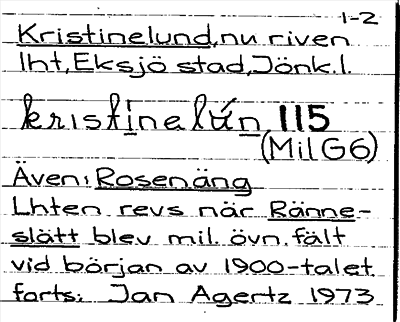 1-2
Kristinelund, nu riven
lht, Eksjö stad, Jönk. l.
kristinelún 115
(Mil G6)
Även: Rosenäng
Lhten revs när Ränne-
slätt blev mil. övn. fält
vid början av 1900-talet.
forts: Jan Agertz 1973